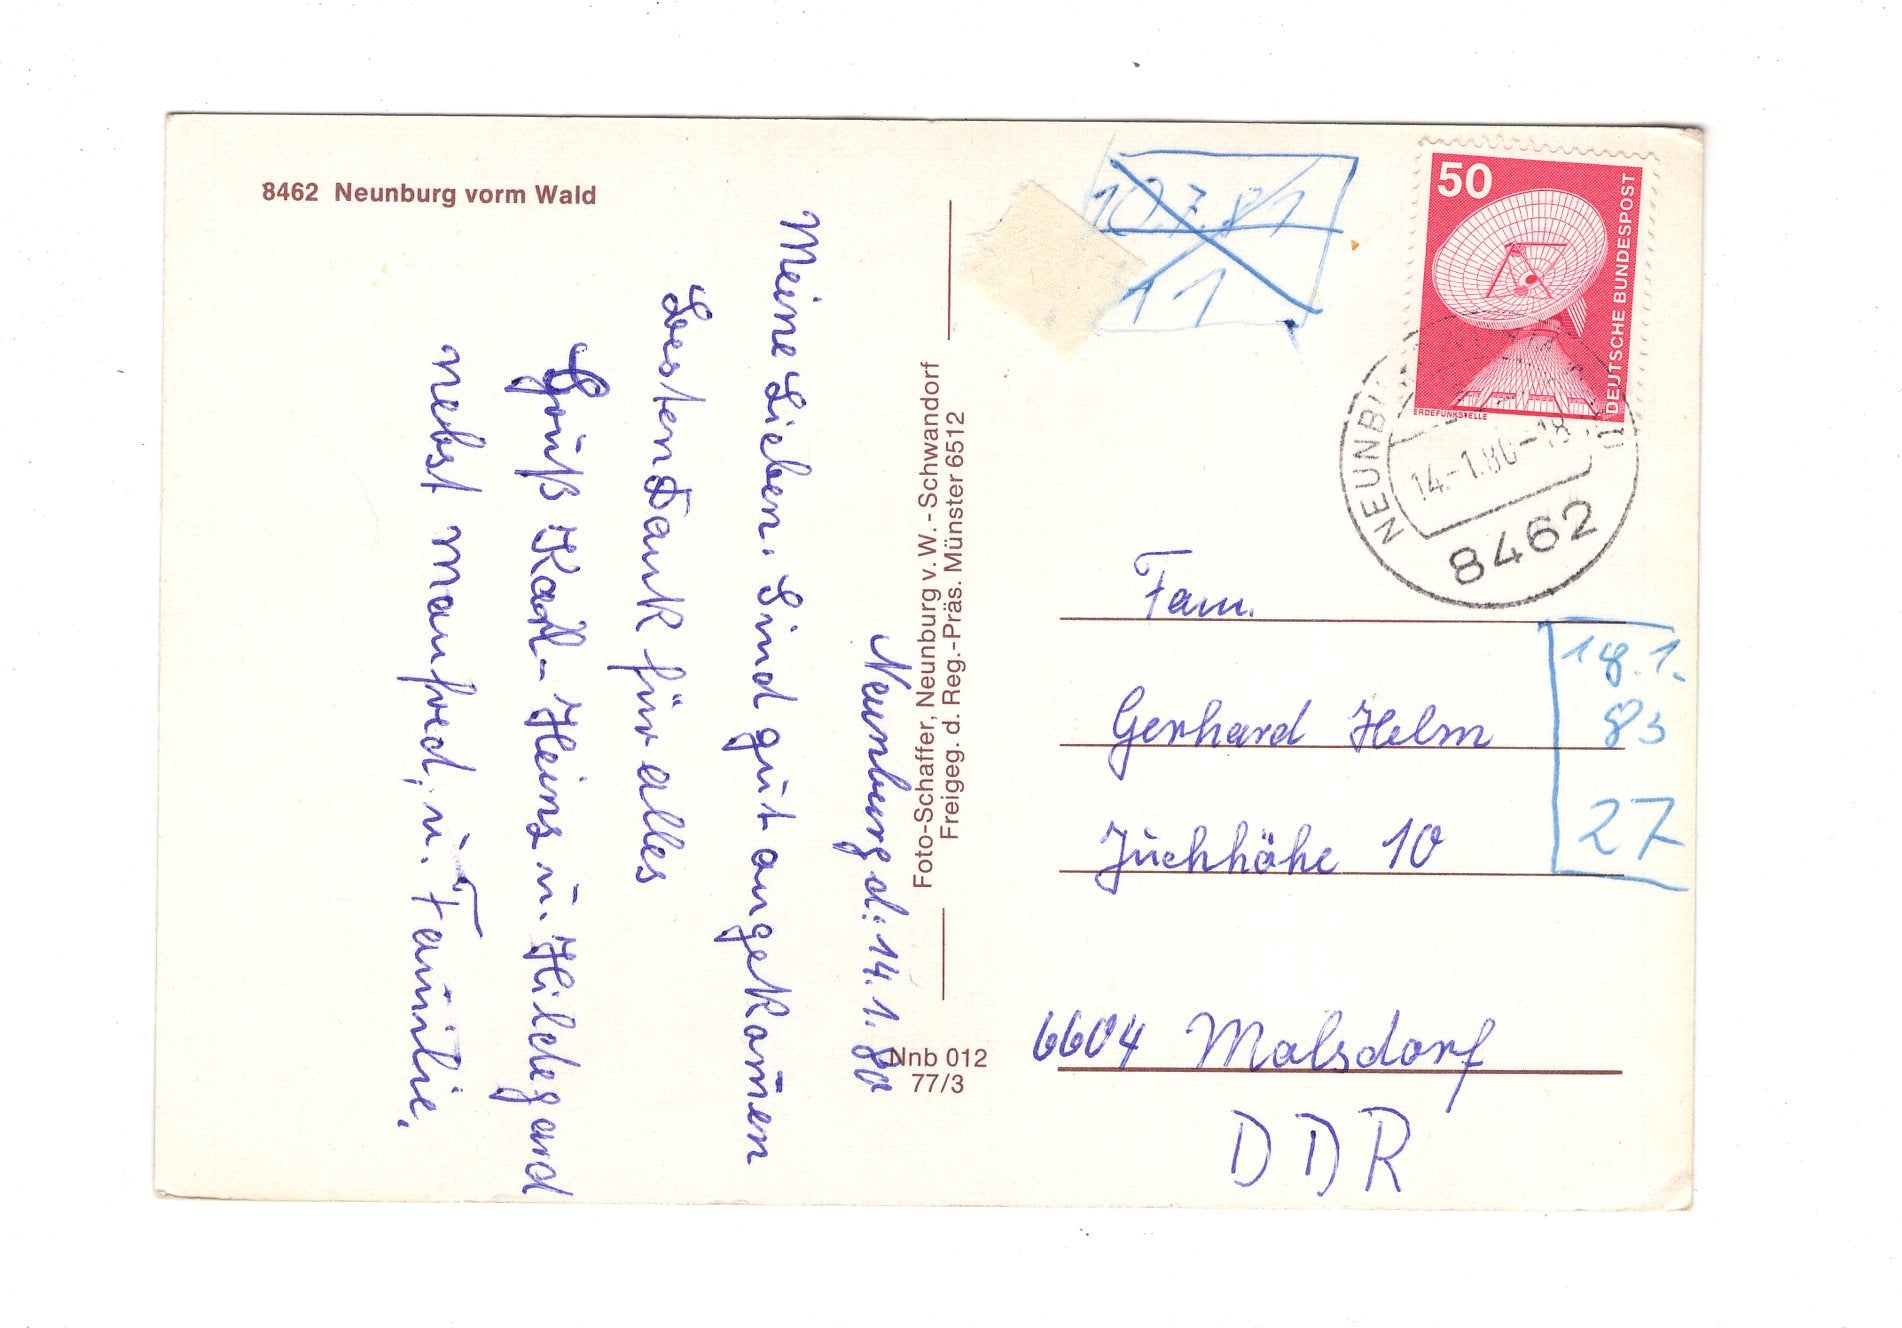 8462 Neunburg vorm Wald
Neunburg d. 14.1.80
Meine Lieben. Sind gut angekommen
besten Dank für alles
Gruß Karl-Heinz u. Hildegard
nebst Manfred, u. Familie.
Foto-Schaffer, Neunburg v. W. - Schwandorf
Freigeg. d. Reg.-Präs. Münster 6512
Nnb 012
77/3
10.7.81
11
50
DEUTSCHE BUNDESPOST
ERDEFUNKSTELLE
14.-1.80-18
8462
Fam.
Gerhard Helm
Juchhöhe 10
6604 Malsdorf
DDR
18.1.
83
27